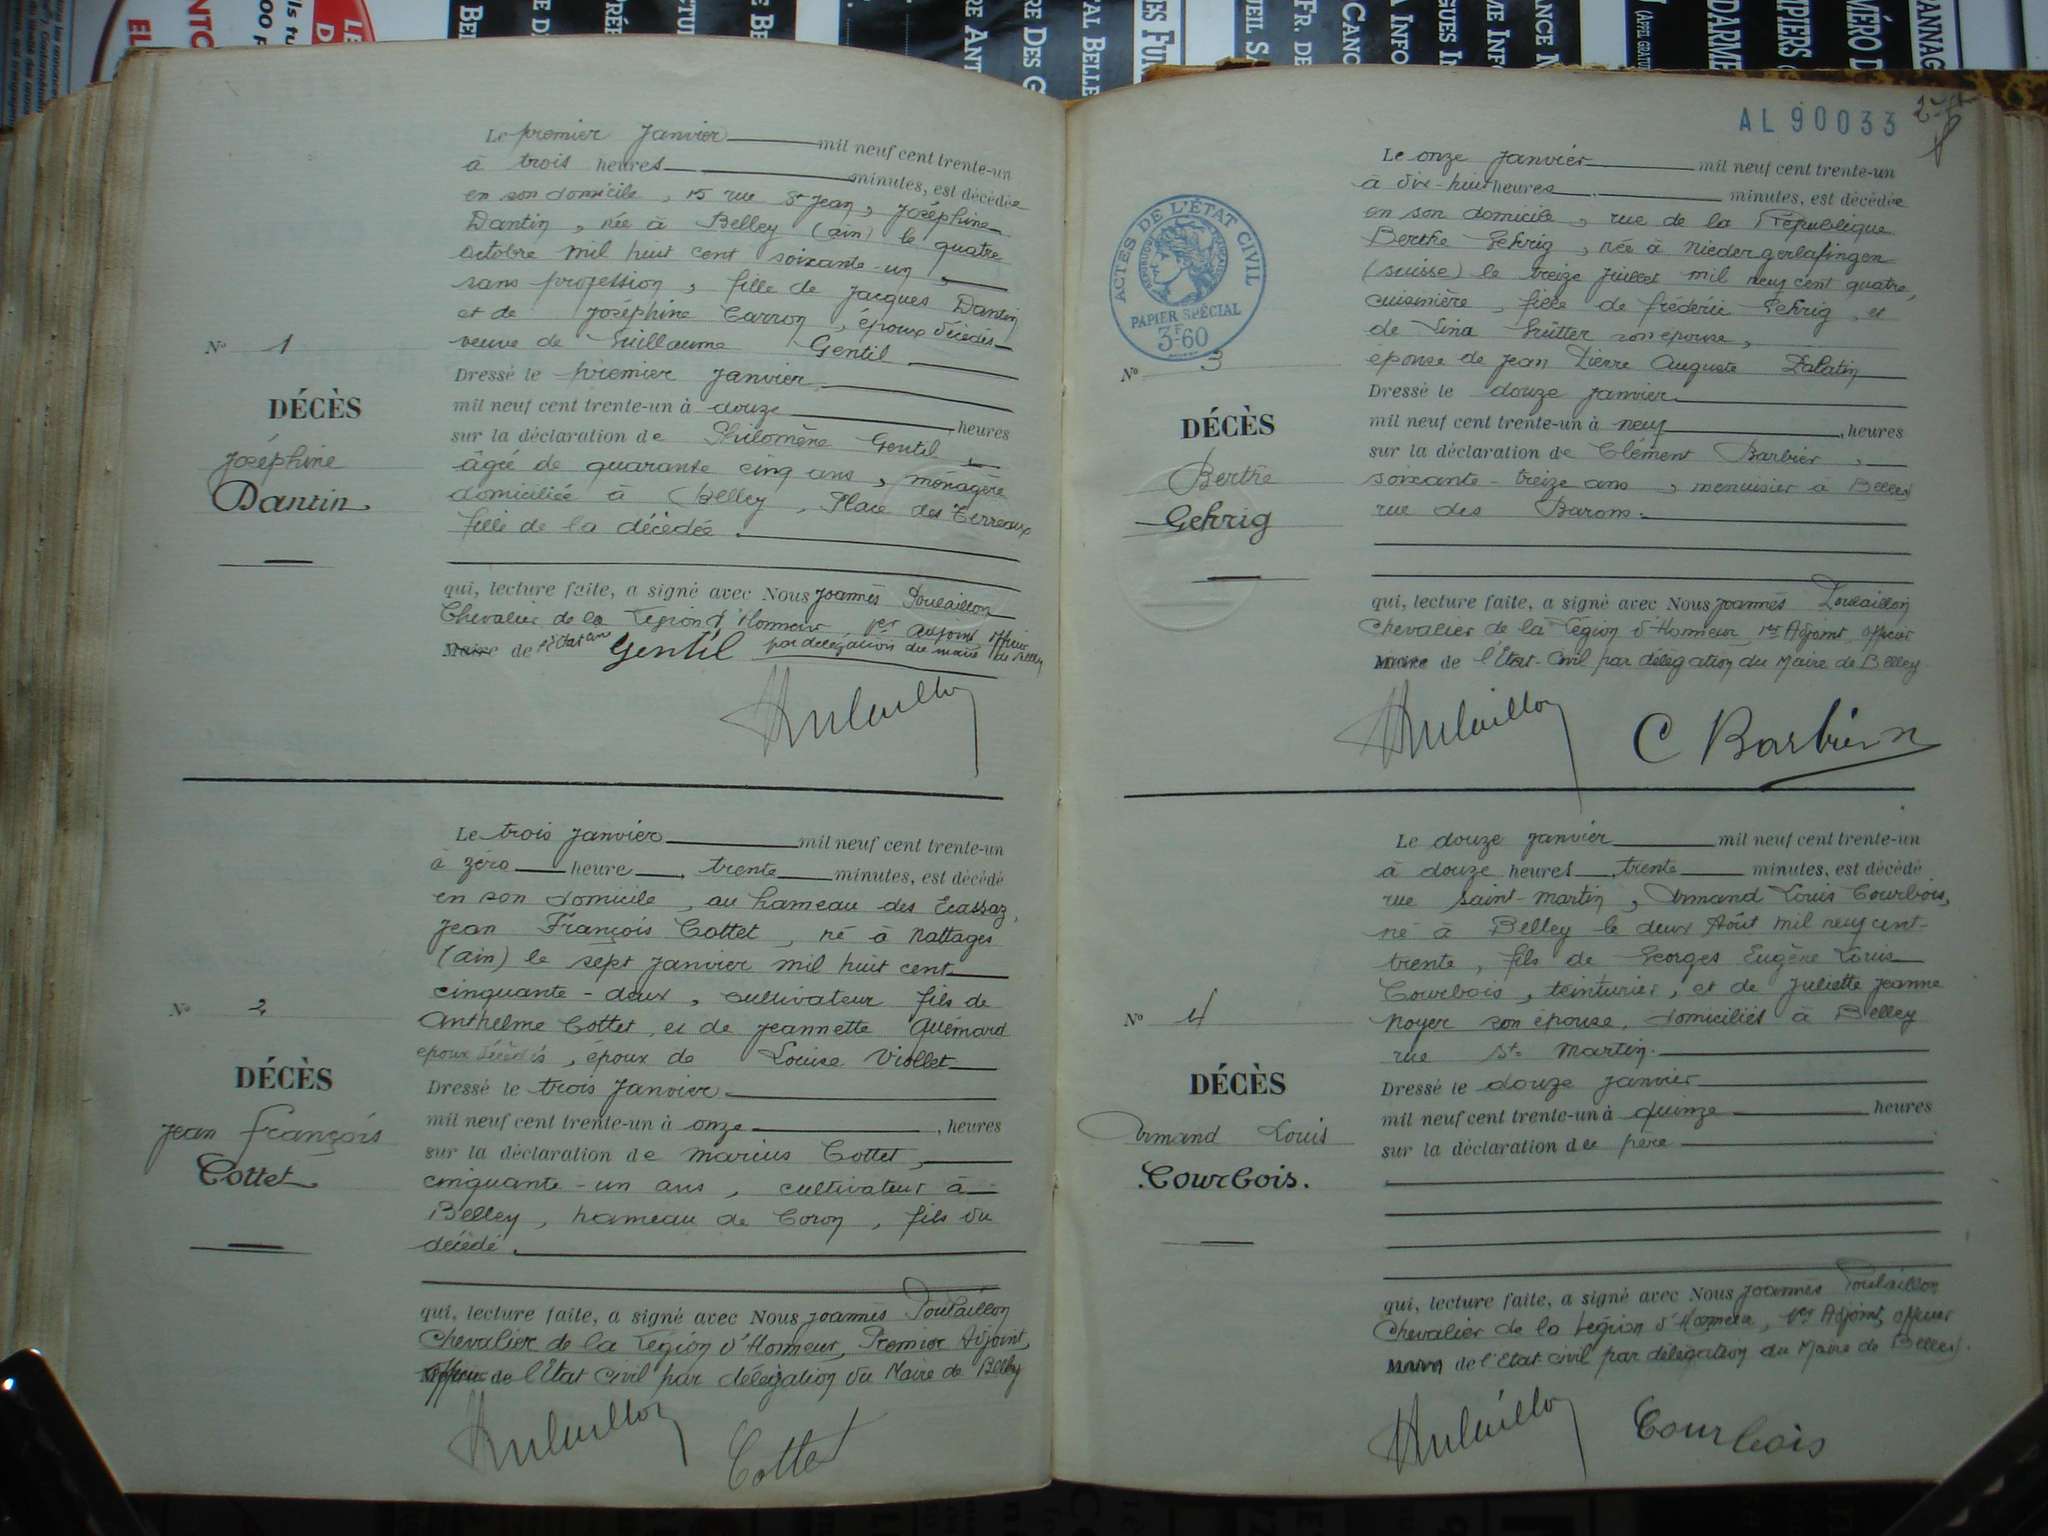 Le premier Janvier mil neuf cent trente-un
à trois heures minutes, est décédée
en son domicile, 15 rue St Jean, Joséphine
Dantin, née à Belley (ain) le quatre
octobre mil huit cent soixante-un,
sans profession, fille de Jacques Dantin
et de Joséphine Carron, époux décédés
veuve de Guillaume Gentil
Dressé le premier Janvier
mil neuf cent trente-un à douze heures
sur la déclaration de Philomène Gentil,
âgée de quarante cinq ans, ménagère
domiciliée à Belley, Place des Terreaux
fille de la décédée.
qui, lecture faite, a signé avec Nous Joannès Poulaillon
Chevalier de la Légion d'Honneur 1er adjoint officier
Maire de l'Etat civil Gentil par délégation du maire de Belley
N° 1
DÉCÈS
Joséphine
Dantin
Le trois Janvier mil neuf cent trente-un
à zéro heure trente minutes, est décédé
en son domicile, au hameau des Ecassaz,
Jean François Cottet, né à Nattages
(ain) le sept Janvier mil huit cent
cinquante-deux, cultivateur fils de
Anthelme Cottet et de Jeannette Quémard
époux décédés, époux de Louise Viollet
Dressé le trois Janvier
mil neuf cent trente-un à onze, heures
sur la déclaration de Marius Cottet,
cinquante-un ans, cultivateur à
Belley, hameau de Coron, fils du
décédé.
qui, lecture faite, a signé avec Nous Joannès Poulaillon
Chevalier de la Légion d'Honneur, Premier Adjoint,
officier de l'Etat Civil par délégation du Maire de Belley
Cottet
N° 2
DÉCÈS
Jean François
Cottet
AL 90033
ACTES DE L'ÉTAT CIVIL
PAPIER SPÉCIAL
3F60
Le onze Janvier mil neuf cent trente-un
à dix-huit heures minutes, est décédée
en son domicile, rue de la République
Berthe Gehrig, née à Niedergerlafingen
(Suisse) le treize Juillet mil neuf cent quatre,
cuisinière, fille de Frédéric Gehrig, et
de Lina Sutter son épouse,
épouse de Jean Pierre Auguste Palatin
Dressé le douze Janvier
mil neuf cent trente-un à neuf, heures
sur la déclaration de Clément Barbier,
soixante-treize ans, menuisier à Belley
rue des Barons.
qui, lecture faite, a signé avec Nous Joannès Poulaillon
Chevalier de la Légion d'Honneur, 1er Adjoint, officier
Maire de l'Etat-Civil par délégation du Maire de Belley
C Barbier
N° 3
DÉCÈS
Berthe
Gehrig
Le douze Janvier mil neuf cent trente-un
à douze heures trente minutes, est décédé
rue Saint-Martin, Armand Louis Courbois,
né à Belley le deux Août mil neuf cent-
trente, fils de Georges Eugène Louis
Courbois, teinturier, et de Juliette Jeanne
Noyer son épouse, domiciliés à Belley
rue St Martin.
Dressé le douze Janvier
mil neuf cent trente-un à quinze heures
sur la déclaration du père
qui, lecture faite, a signé avec Nous Joannès Poulaillon
Chevalier de la Légion d'Honneur, 1er Adjoint, officier
Maire de l'Etat-civil par délégation du Maire de Belley.
Courbois
N° 4
DÉCÈS
Armand Louis
Courbois.